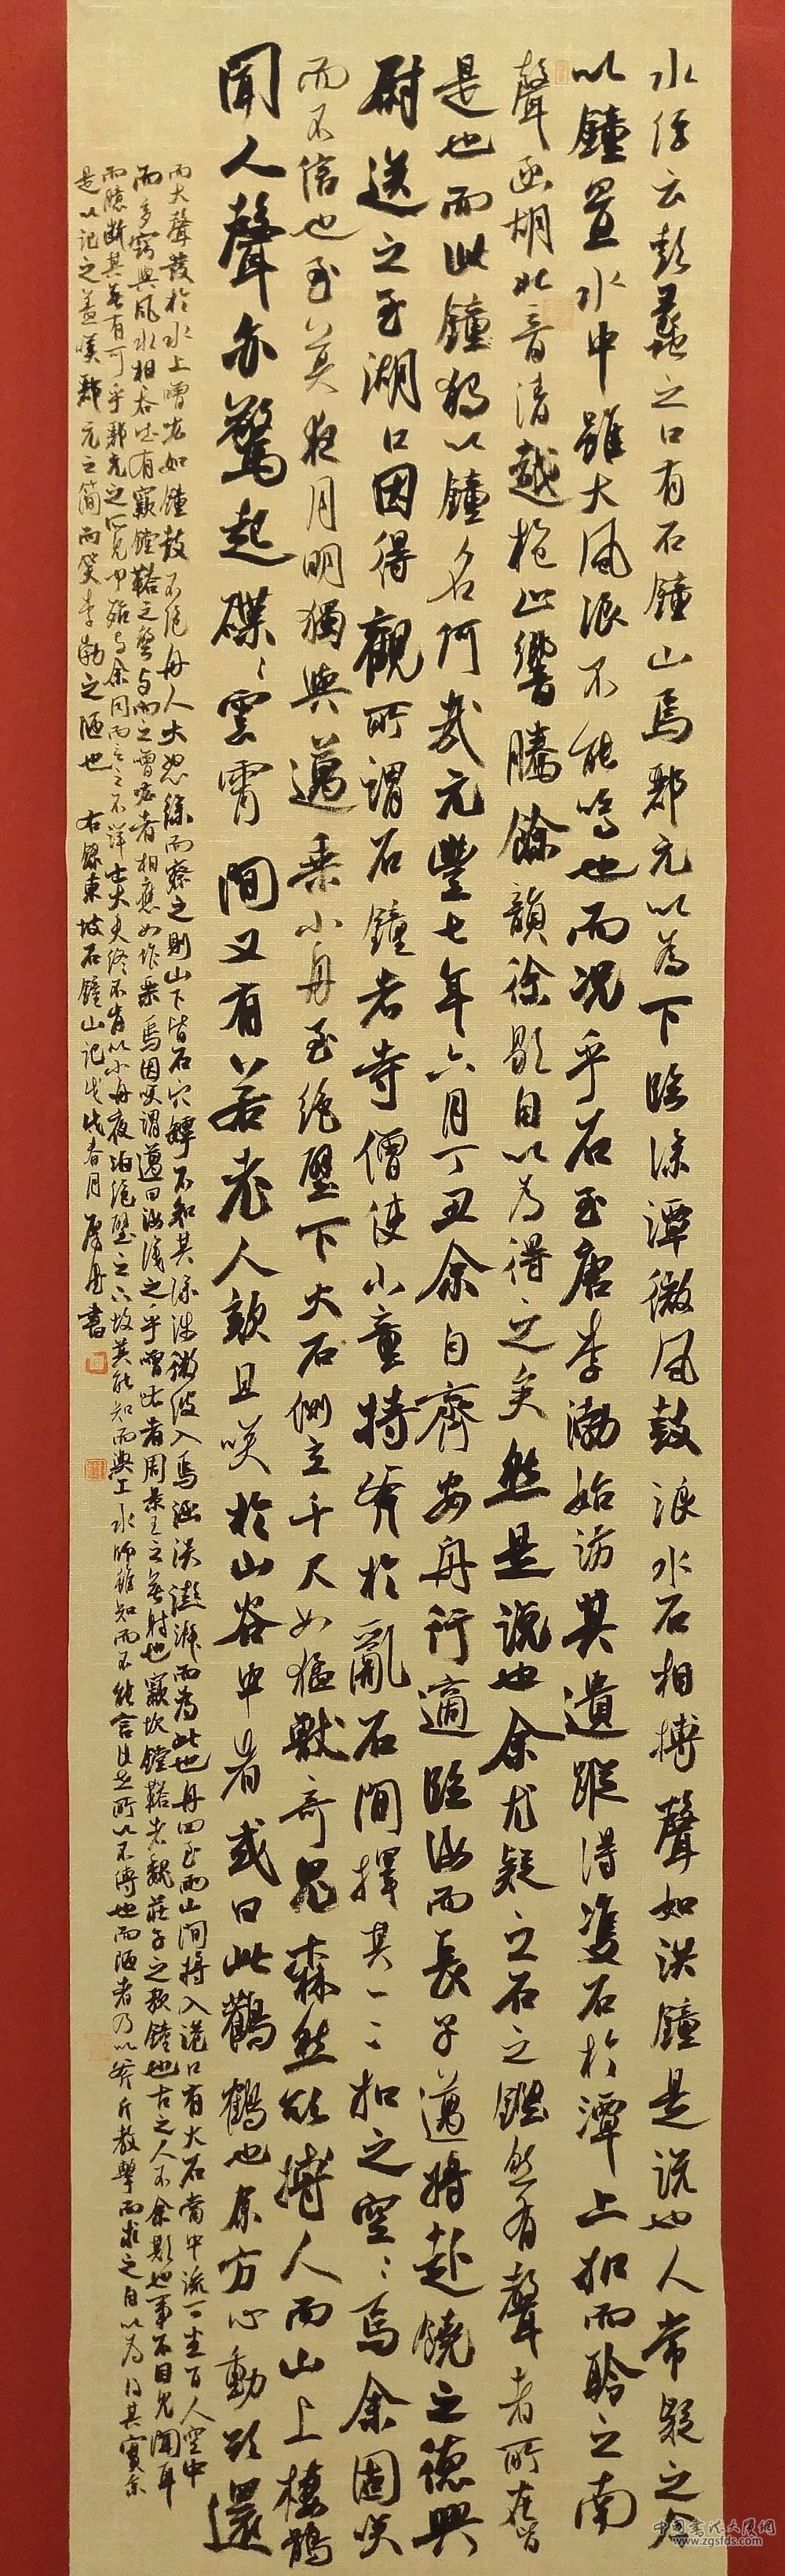 水经云彭蠡之口有石鐘山焉郦元以為下临深潭微风鼓浪水石相搏聲如洪鐘是说也人常疑之今
以鐘置水中雖大风浪不能鸣也而况乎石至唐李渤始访其遺蹤得双石於潭上扣而聆之南
聲函胡北音清越枹止響騰餘韻徐歇自以為得之矣然是说也余尤疑之石之鏗然有聲者所在皆
是也而此鐘独以鐘名何哉元豐七年六月丁丑余自齊安舟行適臨汝而長子邁將赴饒之德興
尉送之至湖口因得觀所謂石鐘者寺僧使小童持斧於亂石間擇其一二扣之空空焉余固笑
而不信也至莫夜月明獨與邁乘小舟至绝壁下大石侧立千尺如猛獸奇鬼森然欲搏人而山上棲鹘
聞人聲亦驚起磔磔雲霄間又有若老人欬且笑於山谷中者或曰此鸛鶴也余方心動欲還
而大聲發於水上噌吰如鐘鼓不绝舟人大恐徐而察之則山下皆石穴罅不知其深浅微波入焉涵淡澎湃而為此也舟回至兩山間將入港口有大石當中流可坐百人空中
而多竅與风水相吞吐有窾鏜鞳之聲与向之噌吰者相應如作樂焉因笑謂邁曰汝識之乎噌吰者周景王之無射也窾坎鏜鞳者魏莊子之歌鐘也古之人不余欺也事不目見耳聞
而臆斷其無有可乎郦元之所見聞殆与余同而言之不詳士大夫终不肯以小舟夜泊绝壁之下故莫能知而漁工水師雖知而不能言此世所以不傳也而陋者乃以斧斤考擊而求之自以為得其實余
是以記之盖嘆郦元之簡而笑李渤之陋也 右錄東坡石鐘山記戊戌春月 書
中国书法大展网
www.zgsfds.com